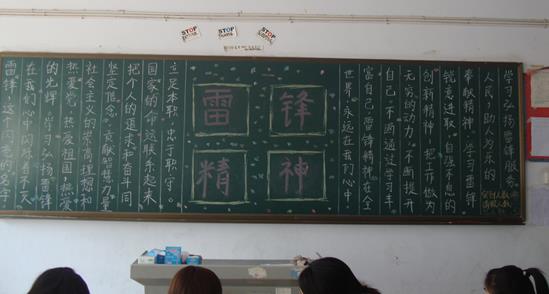 STOP
STOP
STOP
雷锋
精神
学习弘扬雷锋服务
人民，助人为乐的
奉献精神。学习雷锋
锐意进取、自强不息的
创新精神，把工作做为
无穷的动力，不断提升
自己，不断通过学习丰
富自己，雷锋精神在全
世界，永远在我们心中
立足本职、忠于职守。
国家的命运联系起来
把个人的追求和奋斗同
坚定信念，贡献智慧力量
社会主义的崇高理想和
热爱党、热爱祖国、热爱
的先锋，学习弘扬雷锋
在我们心中
雷锋，这个闪
的名字